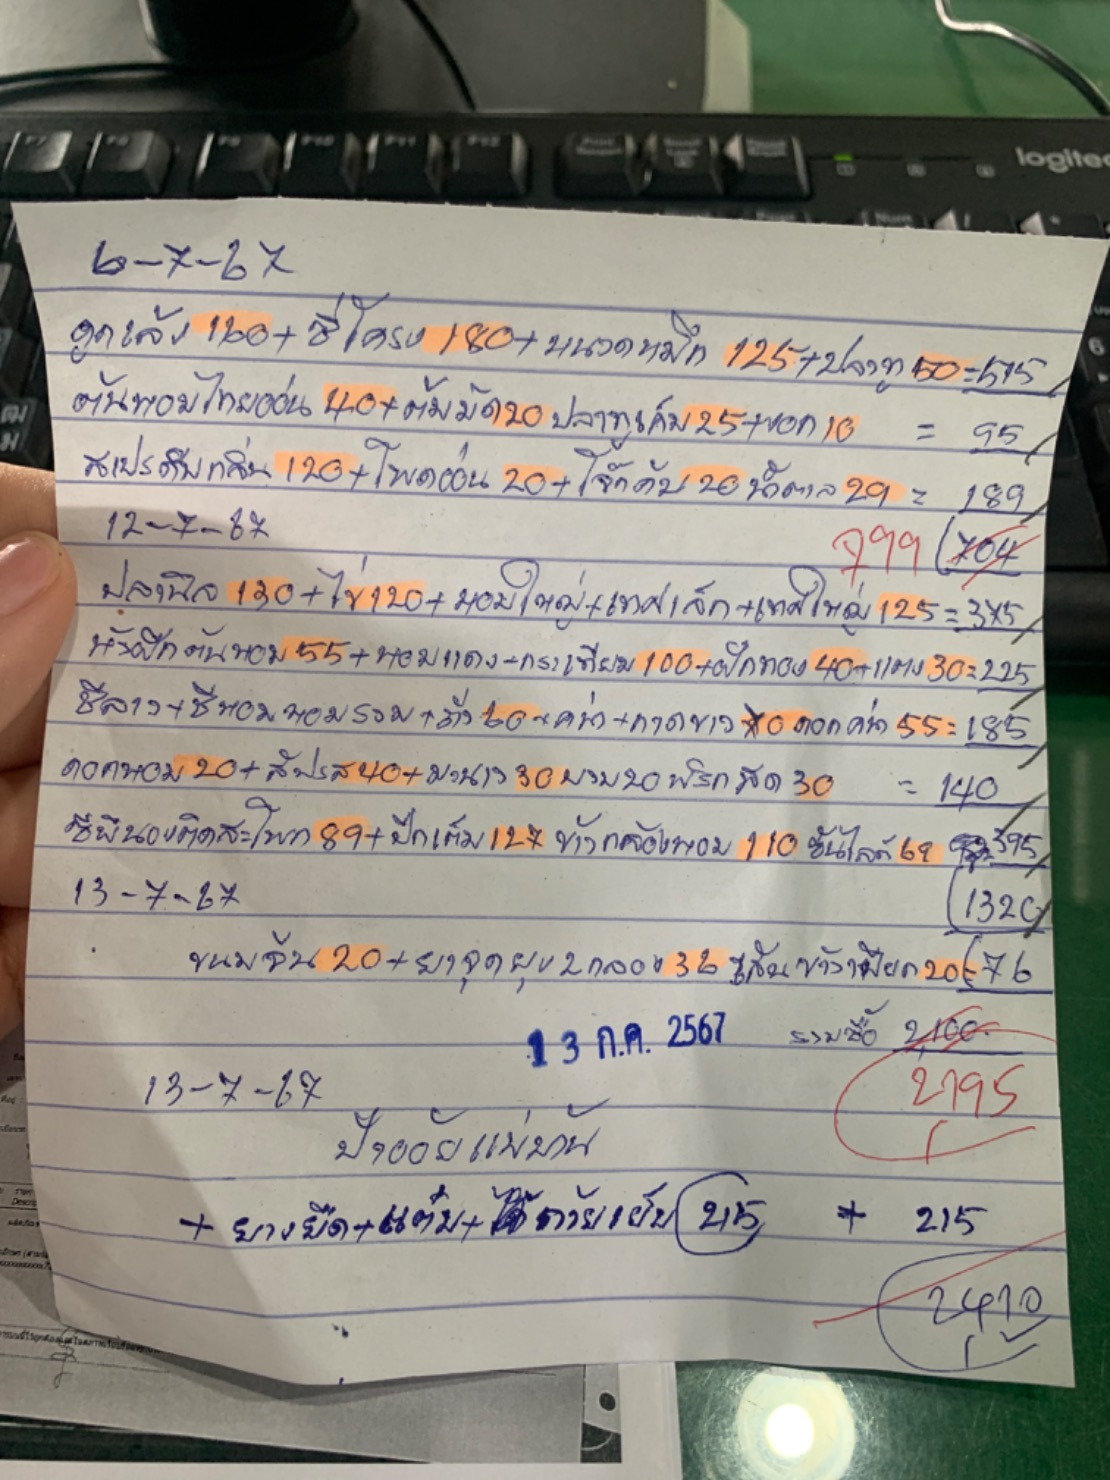 F7 F8 F9 F10 F11 F12
logitec
6-7-67
ดูกเล้ง 160+ ซี่โครง 180+หนวดหมึก 125+ปลาทู 50=515
ต้นหอมไทยอ่อน 40+ต้มมัด20 ปลาทูเค็ม25+หอก10 = 95
สเปรดับกลิ่น 120+โพดอ่อน 20+โจ๊กคัพ 20 น้ำตาล 29 = 189
12-7-67
799 704
ปลานิล 130+ไข่120+หอมใหญ่+เทศเล็ก+เทศใหญ่ 125=375
ถั่วฝักต้นหอม 55+หอมแดง+กระเทียม 100+ฝักทอง 40+แตง 30=225
ชีลาว+ชีหอมหอมรวม+ถั่ว 60+คน้า+กาดขาว 70 ดอกคน้า 55=185
ดอกหอม 20+สัปรส40+มะนาว 30 มวม20 พริกสด 30 = 140
89+ปีกเต็ม 127 ข้าวกล้องหอม 110 ซันไลต์ 69 395
13-7-67
1320
ขนมจีน 20+ยาจุดยุง 2กล่อง 36 เส้นข้าวเปียก 20=76
13 ก.ค. 2567 รวมซื้อ 2,100
13-7-67
2195
ป้าออยแม่บ้าน
+ ยางยืด+แต๋ม+ ด้ายเย็บ 215 + 215
2410